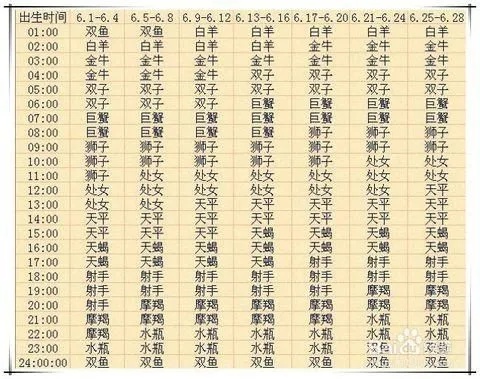 出生时间 6.1-6.4 6.5-6.8 6.9-6.12 6.13-6.16 6.17-6.20 6.21-6.24 6.25-6.28
01:00 双鱼 双鱼 白羊 白羊 白羊 白羊 白羊
02:00 白羊 白羊 白羊 白羊 金牛 金牛 金牛
03:00 金牛 金牛 金牛 金牛 金牛 金牛 金牛
04:00 金牛 金牛 金牛 双子 双子 双子 双子
05:00 双子 双子 双子 双子 双子 双子 双子
06:00 双子 双子 巨蟹 巨蟹 巨蟹 巨蟹 巨蟹
07:00 巨蟹 巨蟹 巨蟹 巨蟹 巨蟹 巨蟹 巨蟹
08:00 巨蟹 巨蟹 巨蟹 狮子 狮子 狮子 狮子
09:00 狮子 狮子 狮子 狮子 狮子 狮子 狮子
10:00 狮子 狮子 狮子 狮子 狮子 处女 处女
11:00 狮子 处女 处女 处女 处女 处女 处女
12:00 处女 处女 处女 处女 处女 处女 天平
13:00 处女 处女 天平 天平 天平 天平 天平
14:00 天平 天平 天平 天平 天平 天平 天平
15:00 天平 天平 天平 天蝎 天蝎 天蝎 天蝎
16:00 天蝎 天蝎 天蝎 天蝎 天蝎 天蝎 天蝎
17:00 天蝎 天蝎 天蝎 天蝎 射手 射手 射手
18:00 射手 射手 射手 射手 射手 射手 射手
19:00 射手 射手 射手 射手 射手 摩羯 摩羯
20:00 射手 摩羯 摩羯 摩羯 摩羯 摩羯 摩羯
21:00 摩羯 摩羯 摩羯 摩羯 摩羯 水瓶 水瓶
22:00 摩羯 水瓶 水瓶 水瓶 水瓶 水瓶 水瓶
23:00 水瓶 水瓶 水瓶 水瓶 水瓶 双鱼 双鱼
24:00:00 双鱼 双鱼 双鱼 双鱼 双鱼 双鱼 双鱼